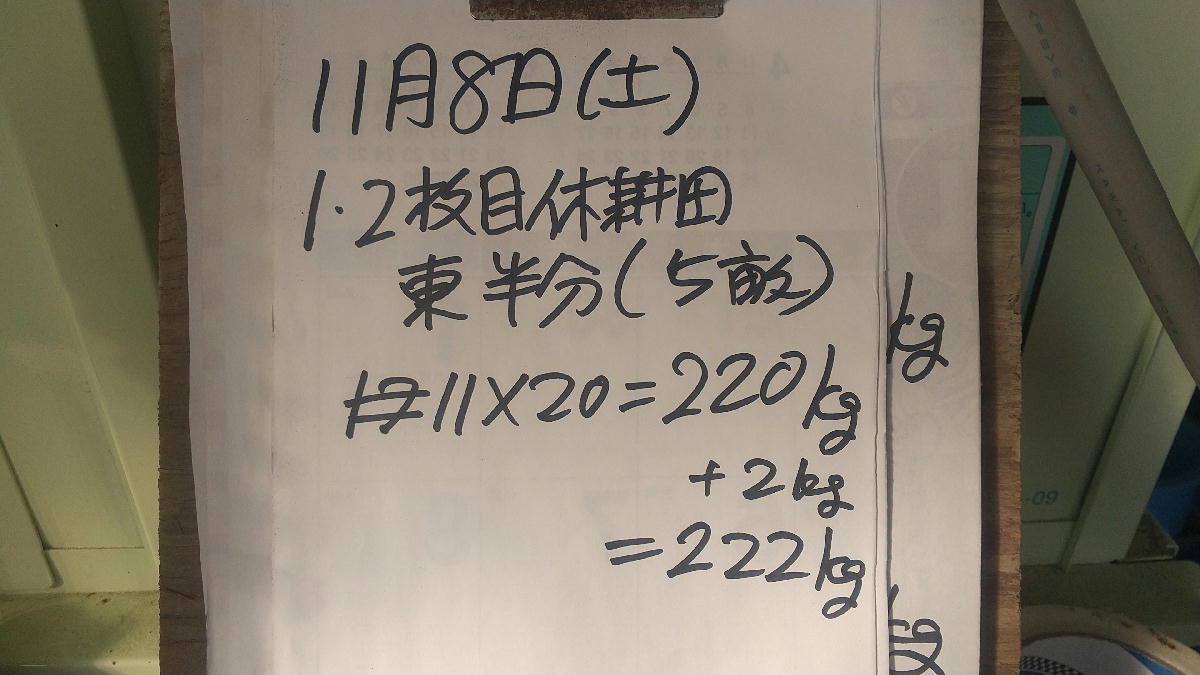 11月8日(土)
1.2枚目休耕田
東半分(5畝)
12 11×20=220kg
+2kg
=222kg
kg
kg
-09